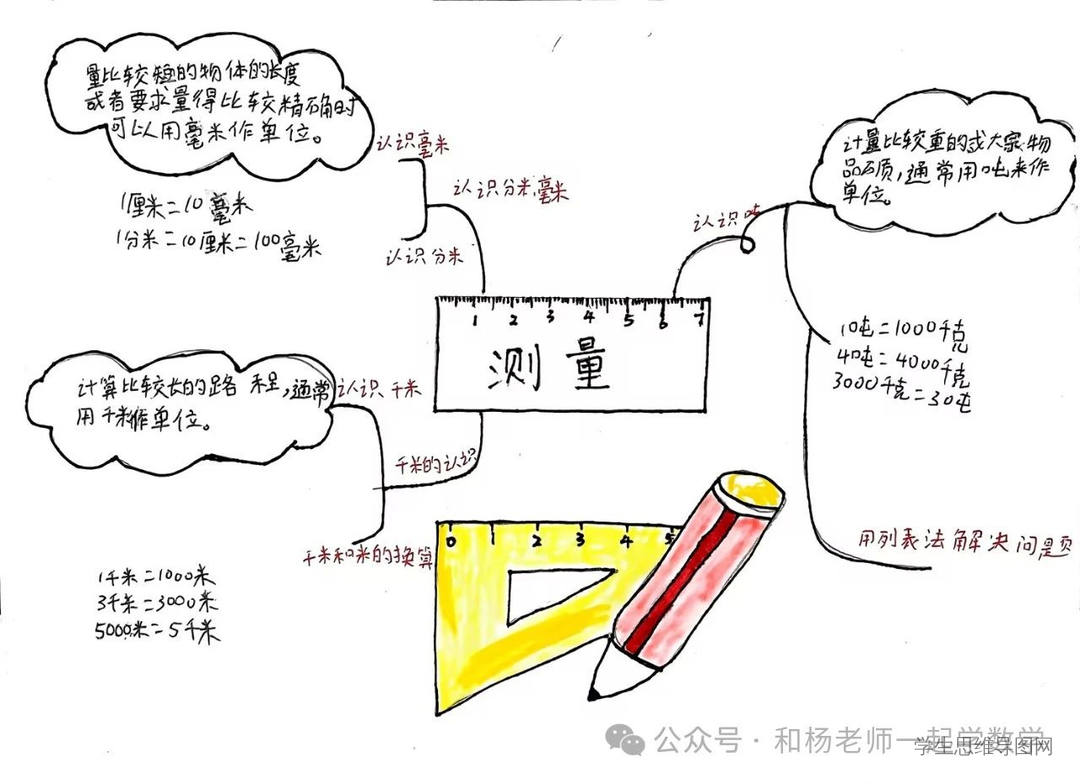 量比较短的物体的长度
或者要求量得比较精确时
可以用毫米作单位。
认识毫米
认识分米,毫米
认识分米
1厘米=10毫米
1分米=10厘米=100毫米
计量比较重的或大家物
品质,通常用吨来作
单位。
认识吨
1吨=1000千克
4吨=4000千克
3000千克=3吨
用列表法解决问题
1 2 3 4 5 6 7
测量
计算比较长的路程,通常
用千米作单位。
认识千米
千米的认识
千米和米的换算
1千米=1000米
3千米=3000米
5000米=5千米
0 1 2 3 4 5
公众号·和杨老师一起学数学
学生思维导图网